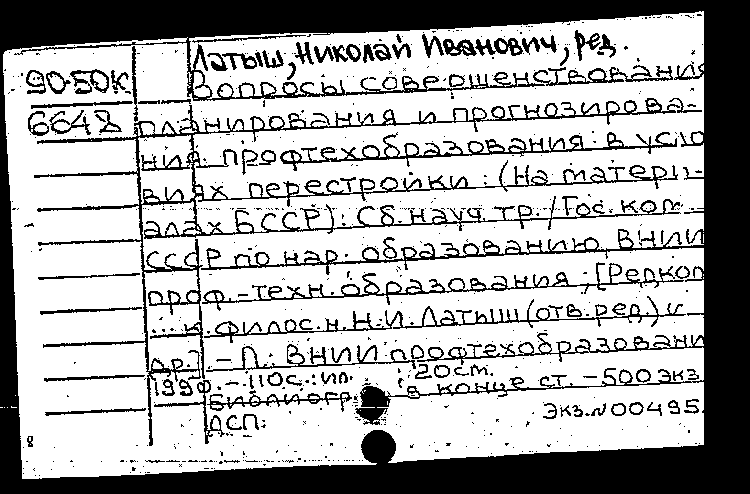 Латыш, Николай Иванович, ред.
90-50К Вопросы совершенствования
6648 планирования и прогнозирова-
ния профтехобразования в усло
виях перестройки: (На матери-
алах БССР): Сб. науч. тр. / Гос. ком.
СССР по нар. образованию, ВНИИ
проф.-техн. образования; [Редкол
... к. филос. н. Н.И. Латыш (отв. ред.) и
др.] - Л.: ВНИИ профтехобразовани
1990. - 110с.: ил. ; 20см.
Библиогр. в конце ст. - 500 экз
ДСП. Экз. N 00495.
8